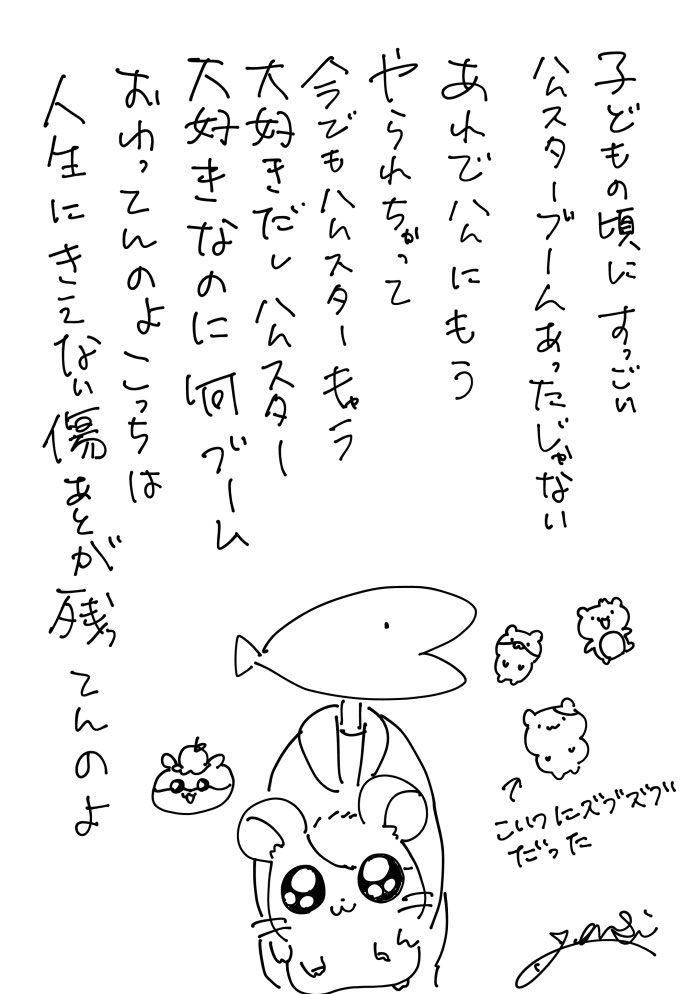 子どもの頃に すっごい
ハムスターブームあったじゃない
あれでハムにもう
やられちゃって
今でもハムスターもう
大好きだし ハムスター
大好きなのに 何ブーム
おわってんのよ こっちは
人生にきえない傷あとが残ってんのよ
こいつにズブズブ
だった